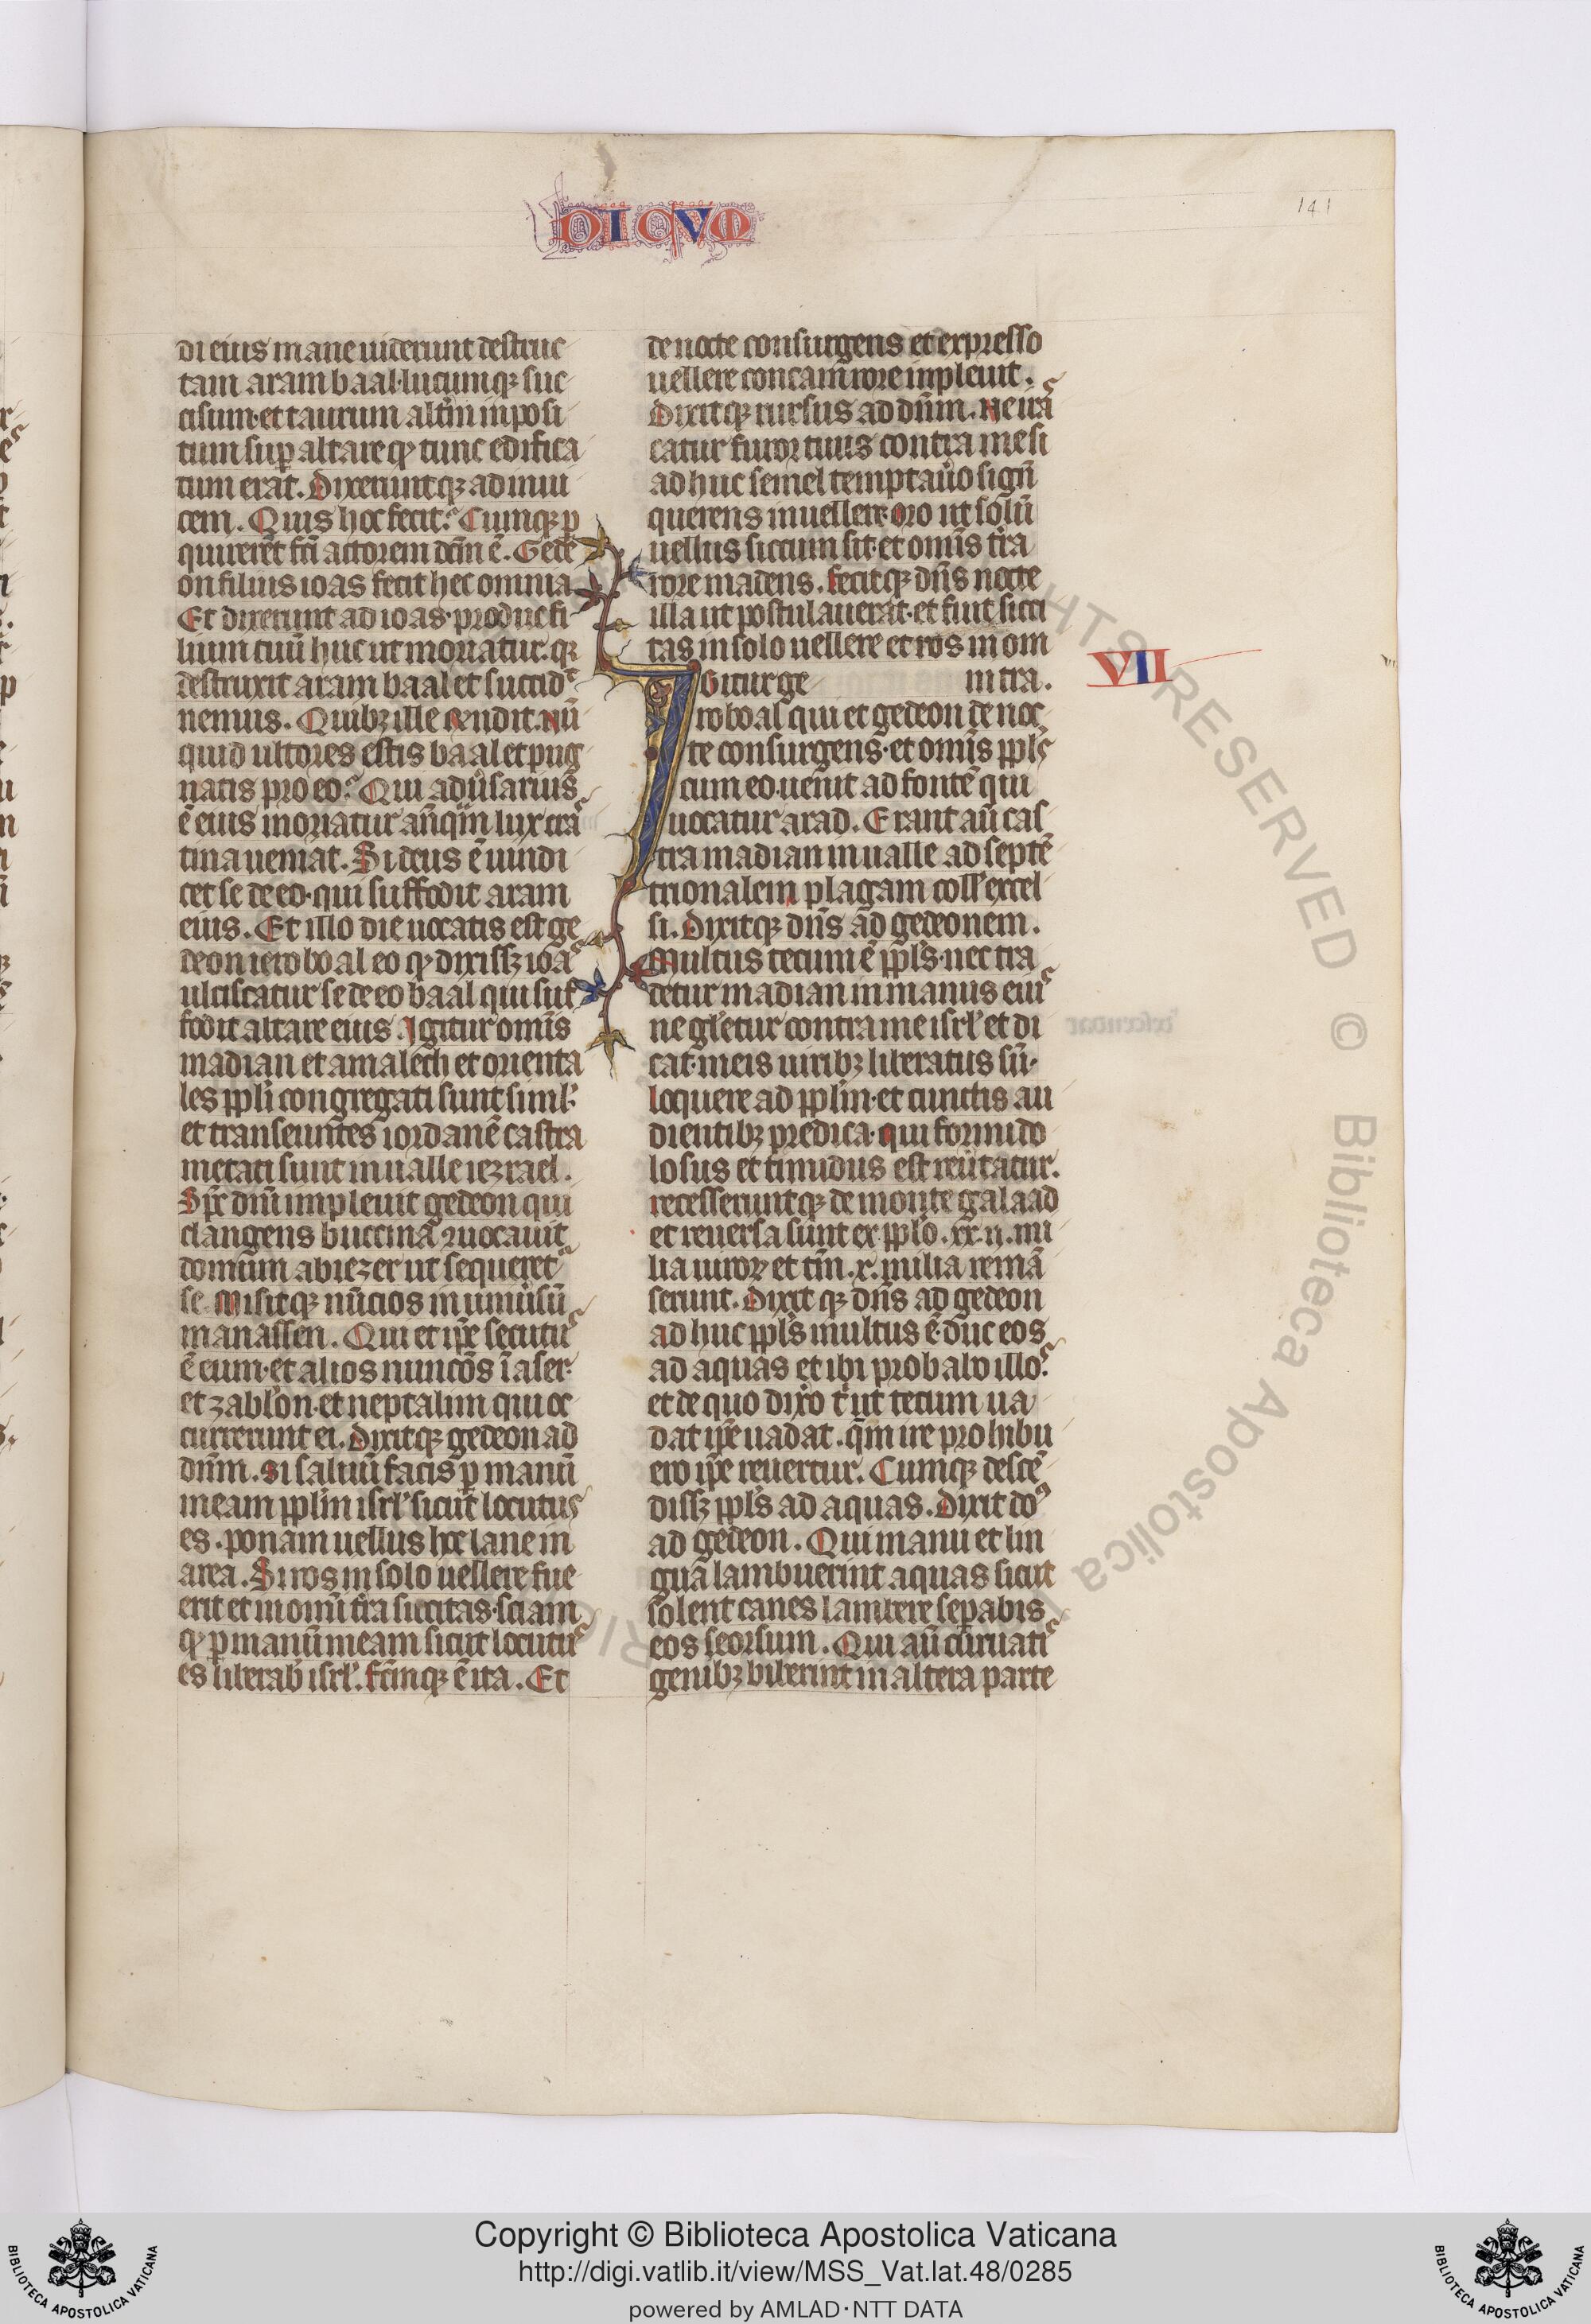 DICUM
141
di eius mane uiderunt destruc
tam aram baal·lucumq; suc
cisum·et taurum altm̄ inposi
tum sup̄ altare qͥ tunc edifica
tum erat. Dixeruntq; ad inui
cem. Quis hoc fecit? Cumq; p
quirerēt fc̄i actorem dcm̄ ē. Gede
on filius ioas fecit hec omnia
Et dixerunt ad ioas·produc fi
lium tuū huc ut moriatur. qr
destruxit aram baal et succidͭ
nemus. Quib; ille rn̄dit. Nū
quid ultores estis baal et pug
natis pro eo? Qui aduͥsarius
ē eius moriatur an̄q̄m lux cra
tina ueniat. Si deus ē uindi
cet se de eo·qui suffodit aram
eius. Et illo die uocatis est ge
deon ieroboal eo qͥ dixiss; ioaˢ
ulciscatur se de eo baal qui suf
fodit altare eius. Igitur om̄is
madian et amalech et orienta
les pp̄li congregati sunt siml̕
et transeuntes iordanē castra
metati sunt in ualle iezrael.
Sp̄c dn̄i impleuit gedeon qui
clangens buccinā ꝯuocauit
domum abiezer ut sequeretͬ
se. Misitq; nūcios in uniuͥsū
manassen. Qui et ip̄e secutuˢ
ē eum·et alios nuncōs ī aser·
et zabl̕on·et neptalim qui oc
currerunt ei. Dixitq; gedeon ad
dn̄m. Si saluū facis p̄ manū
meam pp̄lm̄ isrl̕ sicut locutus
es. ponam uellus hoc lane in
area. Si ros in solo uellere fue
erit et in omī tr̄a siccitas·sciam
qͥ p̄ manū meam sicut locutuˢ
es liberab̕ isrl̕. Fc̄mq; ē ita. Et
de nocte consurgens et expresso
uellere concam rore inpleuit.
Dixitq; rursus ad dn̄m. Ne iraˢ
catur furor tuus contra me si
ad huc semel temptauͦo sign̄
querens in uellere. Oro ut solū
uellus siccum sit·et om̄is tr̄a
rore madens. Fecitq; dn̄s nocte
illa ut postulauerat·et fuit sicci
tas in solo uellere et ros in om
ni tr̄a.
VII
Igitur ge
roboal qui et gedeon de noc
te consurgens·et om̄is pp̄ls
cum eo·uenit ad fontē qui
uocatur arad. Erant aū cas
tra madian in ualle ad septē
trionalem plagam coll̕ excel
si. Dixitq; dn̄s ad gedeonem.
Multus tecum ē pp̄ls·nec tra
detur madian in manus eiuˢ
ne gl̕etur contra me isrl̕ et di
cat·meis uirib; liberatus sū·
loquere ad pp̄lm·et cunctis au
dientib; predica·qui formido
losus et timidus est reuͥtatur.
recesseruntq; de monte galaad
et reuersa sunt ex pp̄lo .xx.ii. mi
lia uiroꝝ et tm̄ .x. milia remā
serunt. Dixit q; dn̄s ad gedeon
ad huc pp̄ls multus ē·duc eos
ad aquas et ibi probabo illoˢ
et de quo dixͦo tͥ ut tecum ua
dat ip̄e uadat. q̄m ire prohibu
ero ip̄e reuertur. Cumq; descē
diss; pp̄ls ad aquas. Dixit doˢ
ad gedeon. Qui manu et lin
guā lambuerint aquas sicut
solent canes lambere sep̄abis
eos seorsum. Qui aū curuatiˢ
genib; biberint in altera parte
RIGHTS RESERVED © Biblioteca Apostolica
Copyright © Biblioteca Apostolica Vaticana
http://digi.vatlib.it/view/MSS_Vat.lat.48/0285
powered by AMLAD·NTT DATA
BIBLIOTECA APOSTOLICA VATICANA
BIBLIOTECA APOSTOLICA VATICANA